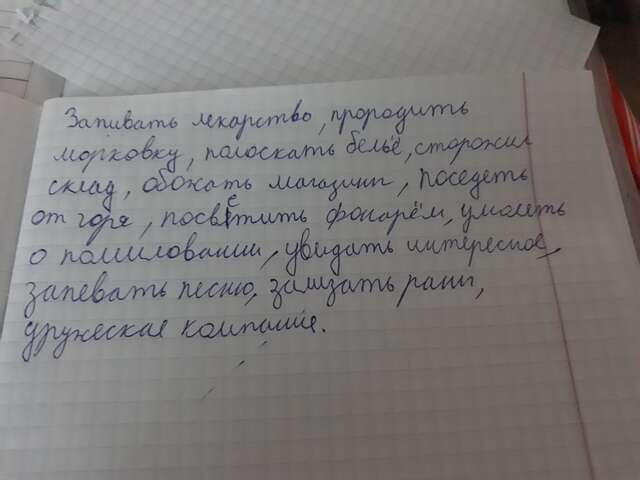 Запивать лекарство, прородить
морковку, полоскать бельё, сторожил
склад, обожать магазин, поседеть
от горя, посветить фонарём, умолять
о помиловании, увидать интересное,
запевать песню, зализать раны,
дружеская компание.